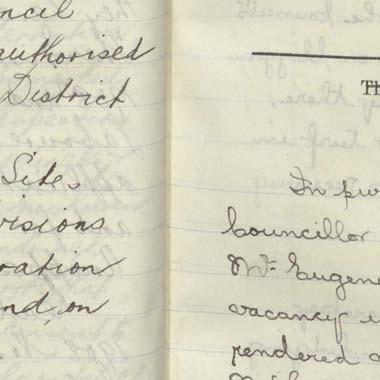 ncil
authorised
District
Site.
visions
ration
nd, on
Th
In pu
Councillor
Mr. Eugene
vacancy i
rendered a